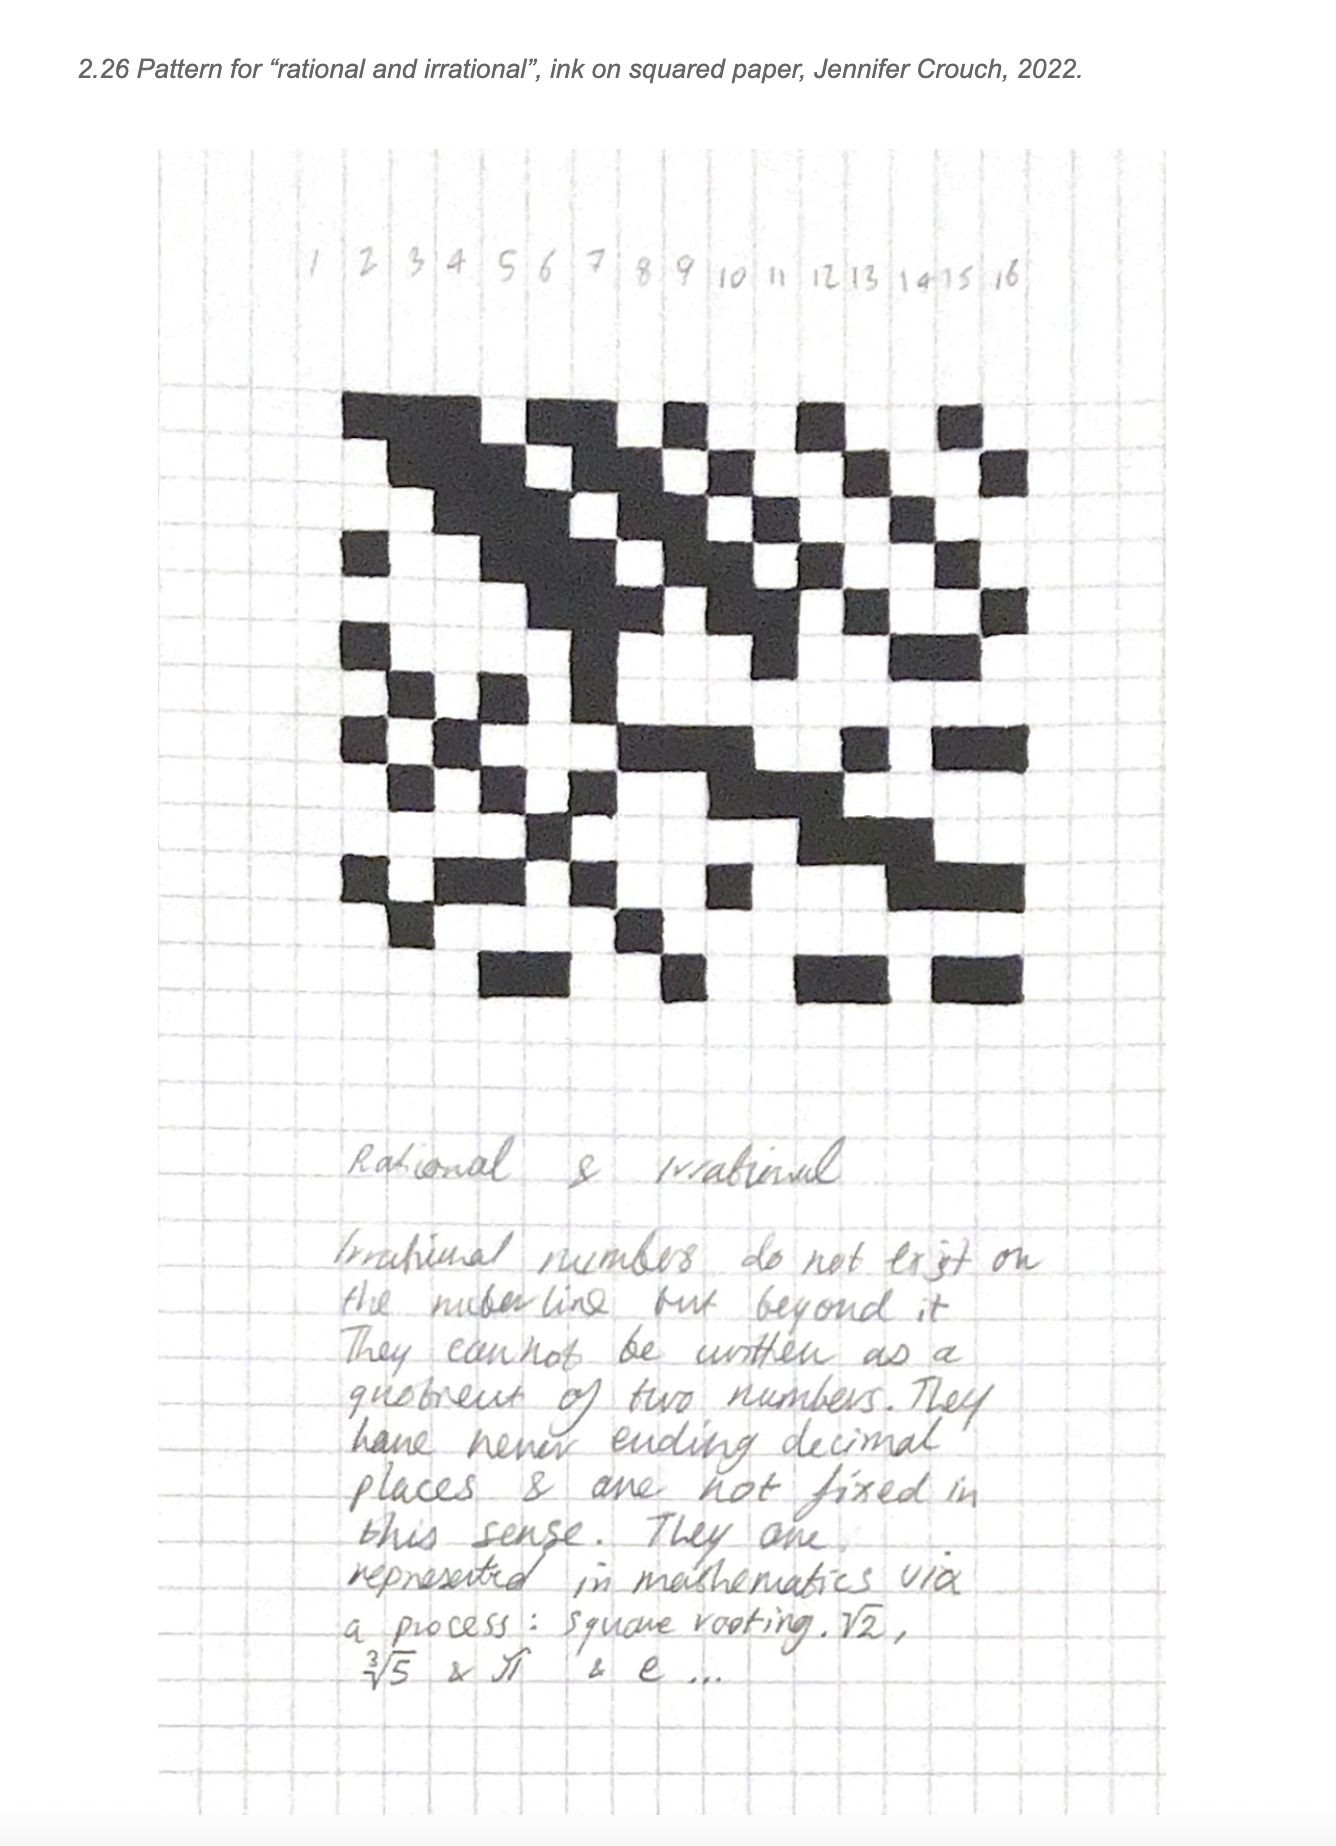 2.26 Pattern for “rational and irrational”, ink on squared paper, Jennifer Crouch, 2022.
1 2 3 4 5 6 7 8 9 10 11 12 13 14 15 16
Rational & Irrational
Irrational numbers do not exist on
the nuber line but beyond it
They cannot be written as a
quotient of two numbers. They
have never ending decimal
places & are not fixed in
this sense. They are
represented in mathematics via
a process : square rooting. √2,
∛5 & π & e ...